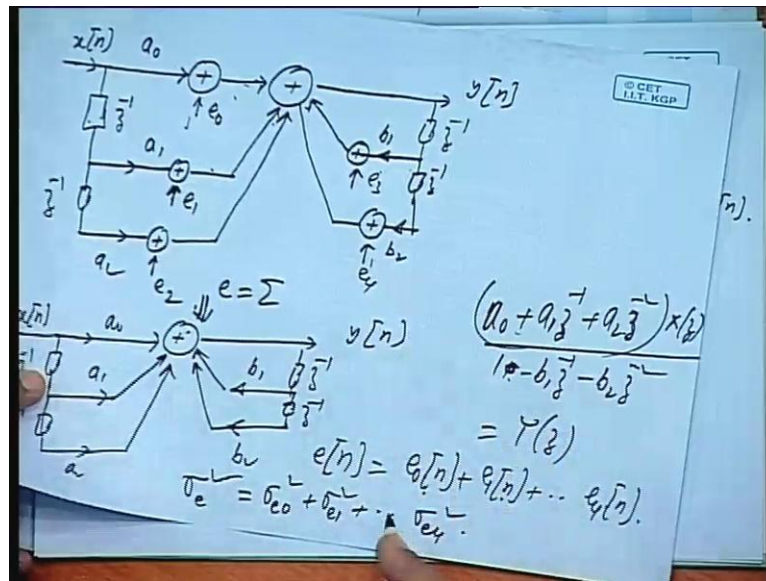 x[n] a₀
y[n]
© CET
I.I.T. KGP
+ +
e₀
z⁻¹
z⁻¹
b₁
+
e₃
z⁻¹
a₁
+
e₁
z⁻¹
a₂
+
e₂
+
b₂
e₄
n].
e = Σ
x[n] a₀
+
y[n]
z⁻¹
a₁
b₁
z⁻¹
z⁻¹
a₂
b₂
(a₀ + a₁z⁻¹ + a₂z⁻²) X(z)
1 - b₁z⁻¹ - b₂z⁻²
= Y(z)
e[n] = e₀[n] + e₁[n] + ... e₄[n].
σₑ² = σₑ₀² + σₑ₁² + ... σₑ₄².